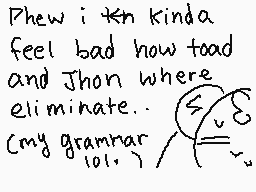 Phew i kn kinda
feel bad how toad
and Jhon where
eliminate..
(my grammar
lol.)